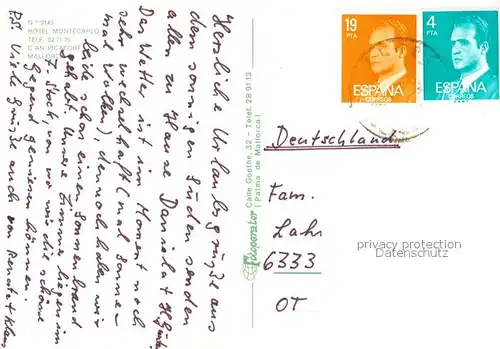 N.º 2143
HOTEL MONTECARLO
TELF. 52 71 75
C'AN PICAFORT
MALLORCA
Herzliche Urlaubsgrüße aus
dem sonnigen Süden senden
allen zu Hause Daniela + H. Günter
Das Wetter ist im Moment noch
sehr wechselhaft (mal Sonne
mal Wolken) dennoch haben wir
beide schon einen Sonnenbrand
gehabt. Unsere Zimmer liegen im
Stock, von wo wir die schöne
Gegend genießen können.
PS. Viele Grüße auch von Renate + Klaus
Fotogenator Calle Goethe, 32 - Telef. 28 91 13
(Palma de Mallorca)
19
PTA
ESPAÑA
CORREOS
4
PTA
ESPAÑA
CORREOS
Deutschland
Fam.
Lahr
6333
OT
privacy protection
Datenschutz